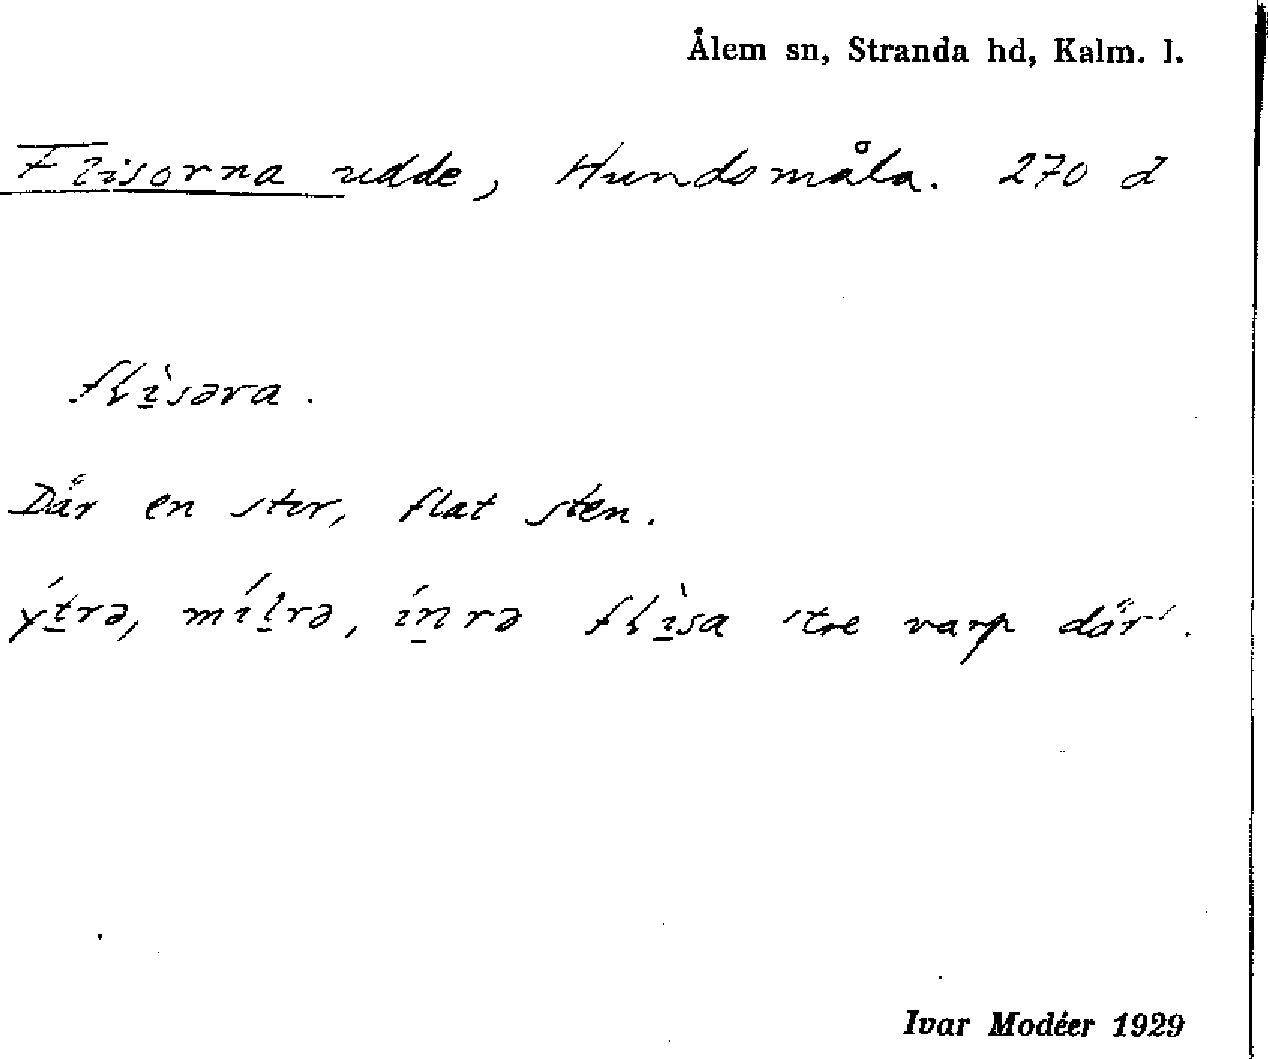 Ålem sn, Stranda hd, Kalm. l.
Flisorna udde, Hundsmåla. 270 d
flɩ̀səra.
Där en stor, flat sten.
ýtrə, mítrə, ínrə flɩ̀sa "tre varp där".
Ivar Modéer 1929